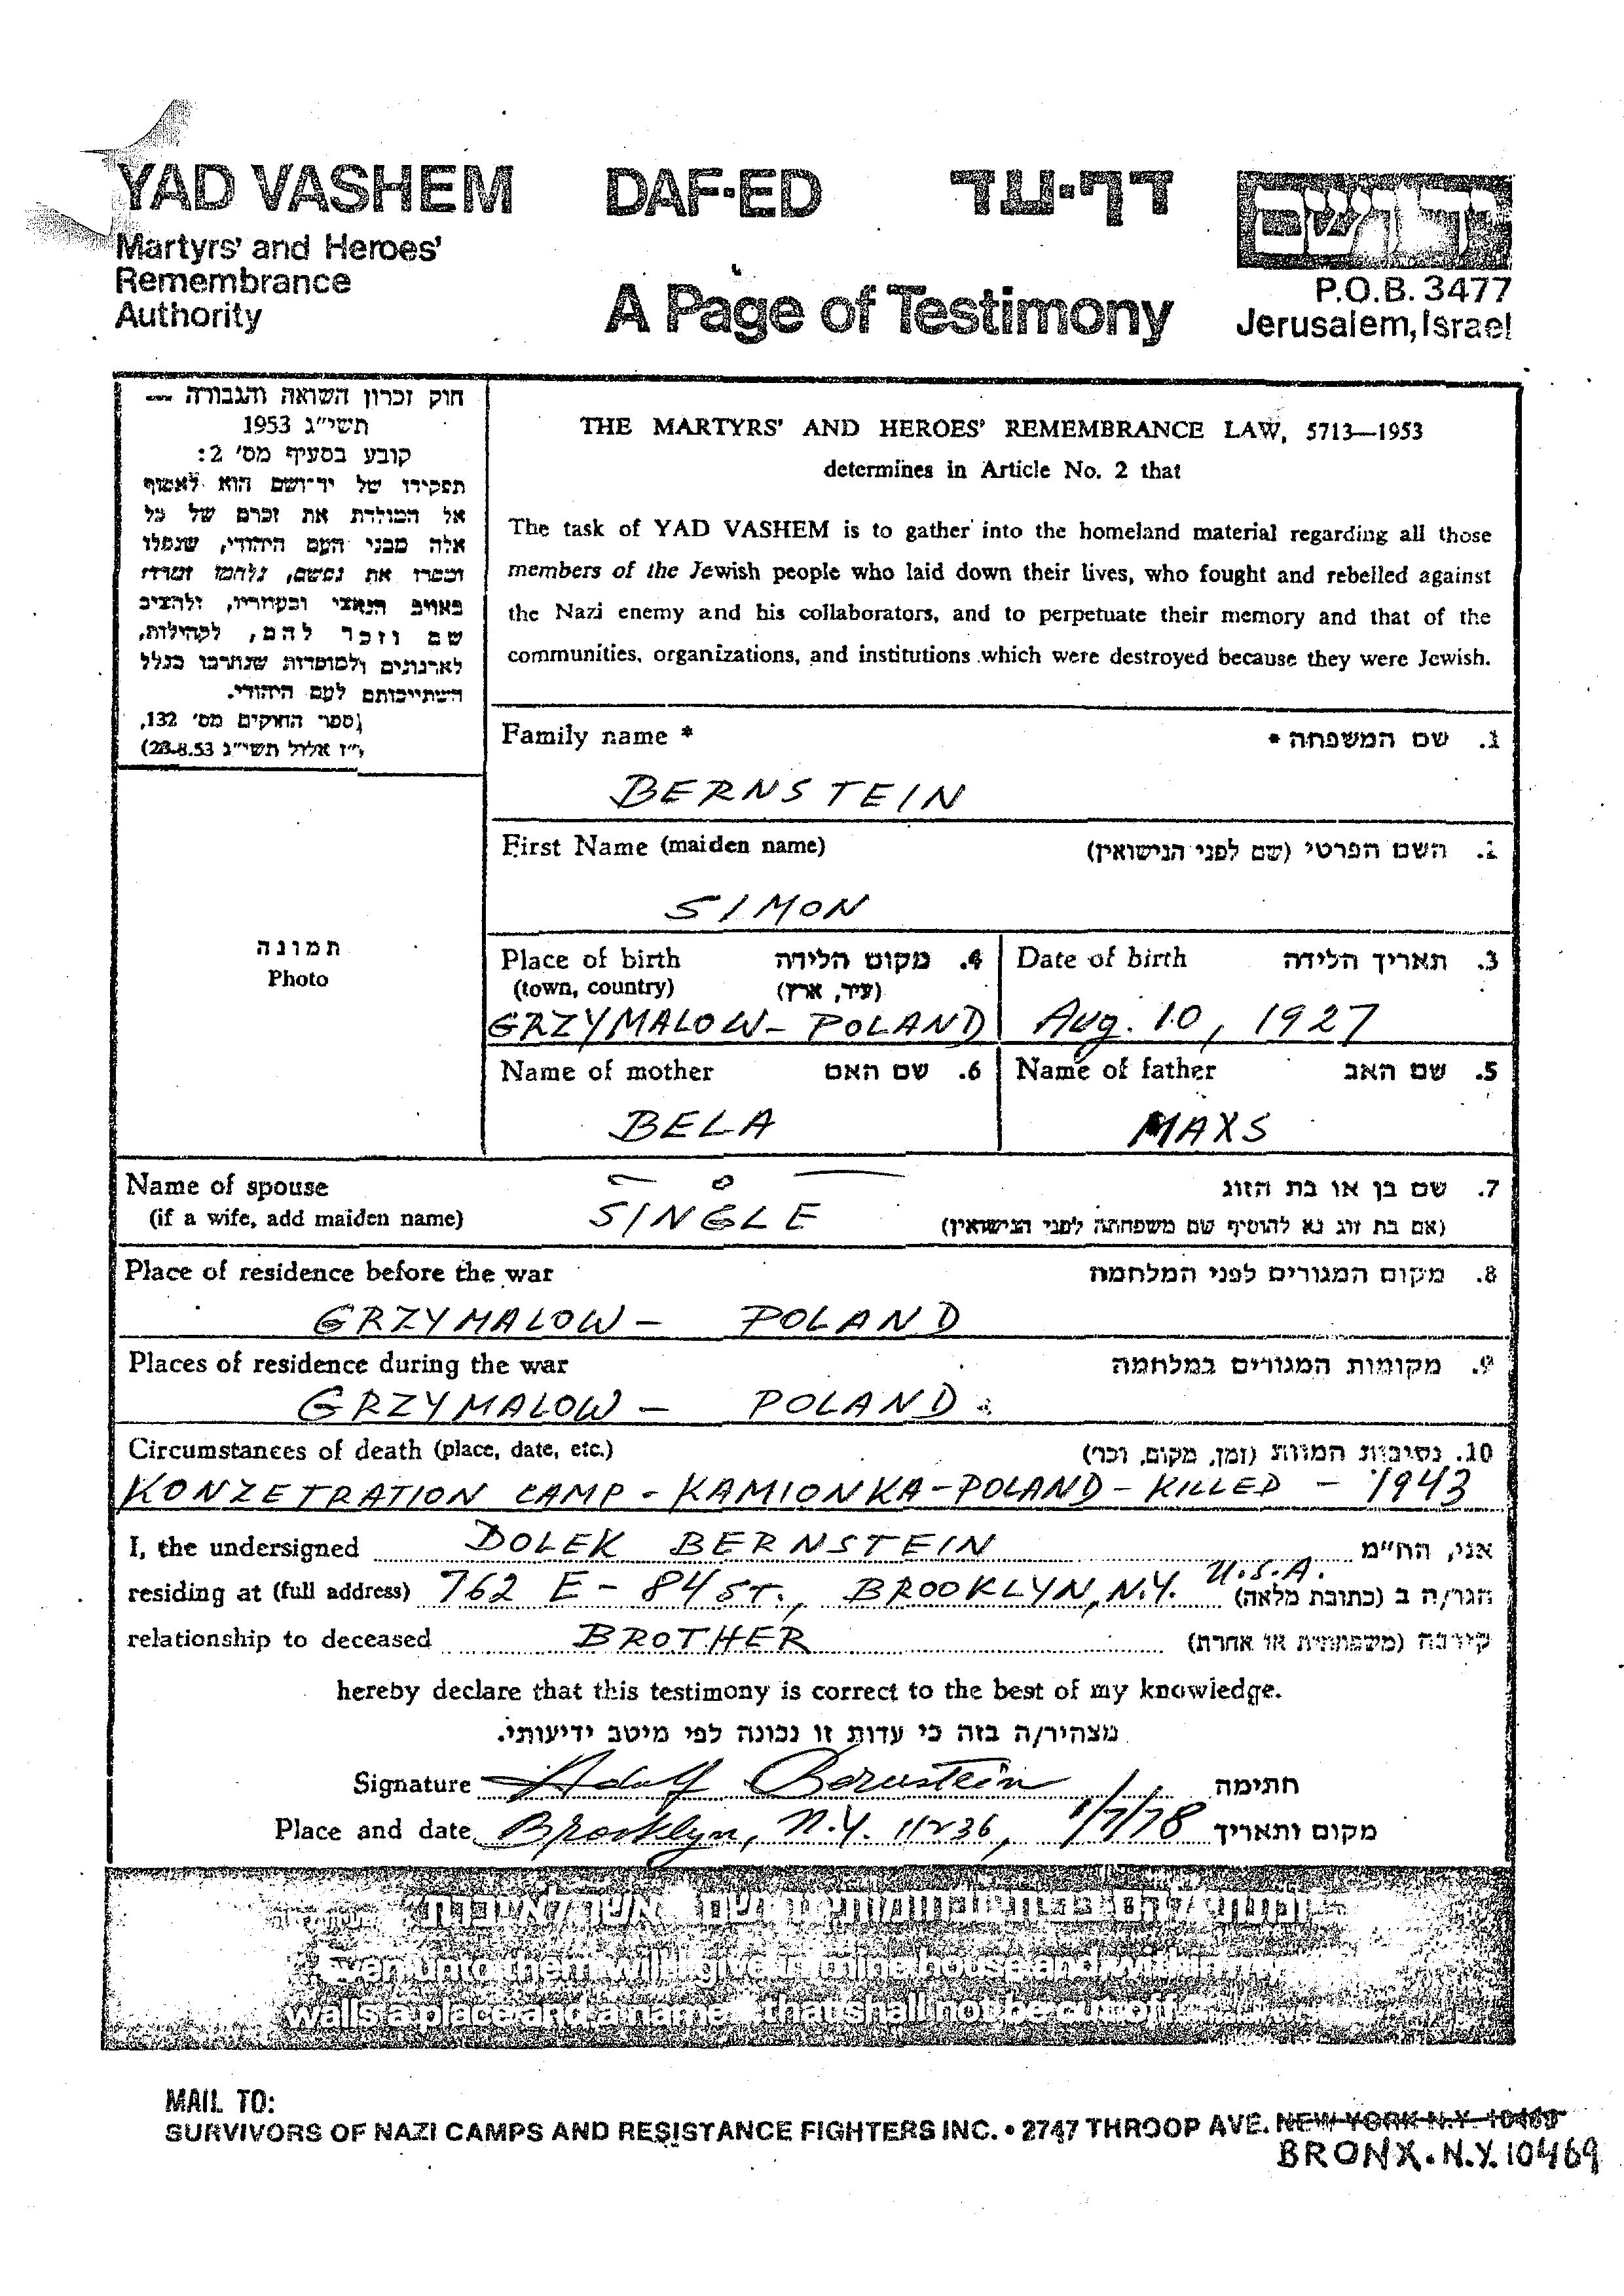 YAD VASHEM
Martyrs' and Heroes'
Remembrance
Authority
DAF-ED
דף-עד
A Page of Testimony
יד ושם
P.O.B. 3477
Jerusalem, Israel
חוק זכרון השואה והגבורה —
תשי"ג 1953
קובע בסעיף מס' 2:
תפקידו של יד-ושם הוא לאסוף
אל המולדת את זכרם של כל
אלה מבני העם היהודי, שנפלו
ומסרו את נפשם, נלחמו ומרדו
באויב הנאצי ובעוזריו, ולהציב
שם וזכר להם, לקהילות,
לארגונים ולמוסדות שנחרבו בגלל
השתייכותם לעם היהודי.
(ספר החוקים מס' 132,
י"ז אלול תשי"ג 28.8.53)
THE MARTYRS' AND HEROES' REMEMBRANCE LAW, 5713—1953
determines in Article No. 2 that
The task of YAD VASHEM is to gather into the homeland material regarding all those
members of the Jewish people who laid down their lives, who fought and rebelled against
the Nazi enemy and his collaborators, and to perpetuate their memory and that of the
communities, organizations, and institutions which were destroyed because they were Jewish.
Family name * 1. שם המשפחה *
BERNSTEIN
First Name (maiden name) השם הפרטי (שם לפני הנישואין)
SIMON
תמונה
Photo
Place of birth 4. מקום הלידה
(town, country) (עיר, ארץ)
GRZYMALOW - POLAND
Date of birth 3. תאריך הלידה
Aug. 10, 1927
Name of mother 6. שם האם
BELA
Name of father 5. שם האב
MAXS
Name of spouse 7. שם בן או בת הזוג
(if a wife, add maiden name) SINGLE (אם בת זוג נא להוסיף שם משפחתה לפני הנישואין)
Place of residence before the war 8. מקום המגורים לפני המלחמה
GRZYMALOW - POLAND
Places of residence during the war 9. מקומות המגורים במלחמה
GRZYMALOW - POLAND.
Circumstances of death (place, date, etc.) 10. נסיבות המוות (זמן, מקום, וכו')
KONZETRATION CAMP - KAMIONKA - POLAND - KILLED - 1943
I, the undersigned DOLEK BERNSTEIN אני, הח"מ
residing at (full address) 762 E - 84 ST., BROOKLYN, N.Y. U.S.A. הגר/ה ב (כתובת מלאה)
relationship to deceased BROTHER קירבה (משפחתית או אחרת)
hereby declare that this testimony is correct to the best of my knowledge.
מצהיר/ה בזה כי עדות זו נכונה לפי מיטב ידיעותי.
Signature Adolf Bernstein חתימה
Place and date Brooklyn, N.Y. 11236, 1/7/78 מקום ותאריך
ונתתי להם בביתי ובחומותי יד ושם אשר לא יכרת
even unto them will I give in mine house and within my
walls a place and a name that shall not be cut off
MAIL TO:
SURVIVORS OF NAZI CAMPS AND RESISTANCE FIGHTERS INC. • 2747 THROOP AVE. NEW YORK N.Y. 10469
BRONX. N.Y. 10469